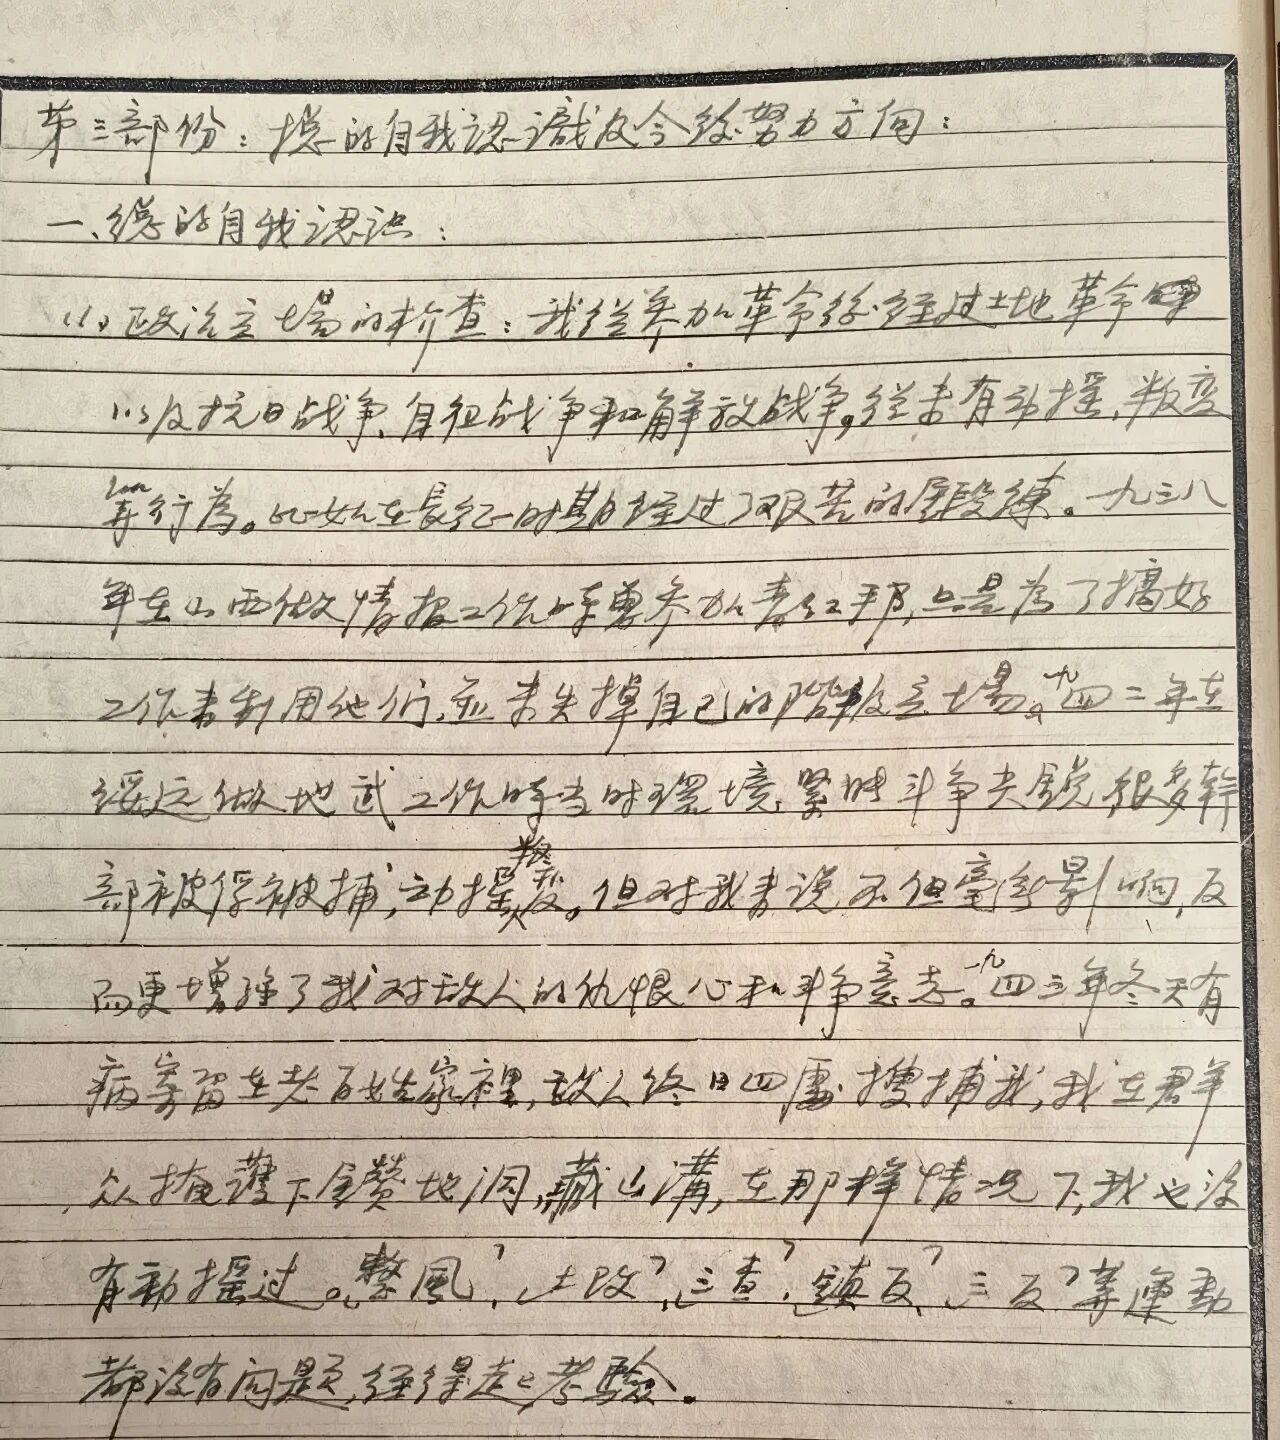 第三部份：揔的自我認識及今後努力方向：
一、總的自我認识：
(1)政治立場的检查：我從参加革命後經过土地革命
以及抗日战争、自衛战争和解放战争。從未有动摇、叛变
等行為。比如在長征时期經过了艰苦的鍛練。一九三八
年在山西做情报工作时曾参加青红帮，只是為了搞好
工作来利用他们，並未失掉自己的階級立場。一九四二年在
綏远做地武工作時当时環境緊张斗争尖銳很多幹
部被俘被捕，动摇叛变。但对我来说不但毫無影响，反
而更增强了我对敌人的仇恨心和斗争意志。一九四三年冬天有
病寄留在老百姓家裡，敌人终日四處搜捕我，我在群
众掩護下鑽地洞，藏山溝，在那样情况下，我也没
有动摇过。“整風”，“土改”，“三查”，“鎮反”，“三反”等運動
都没有问题，經得起考驗。